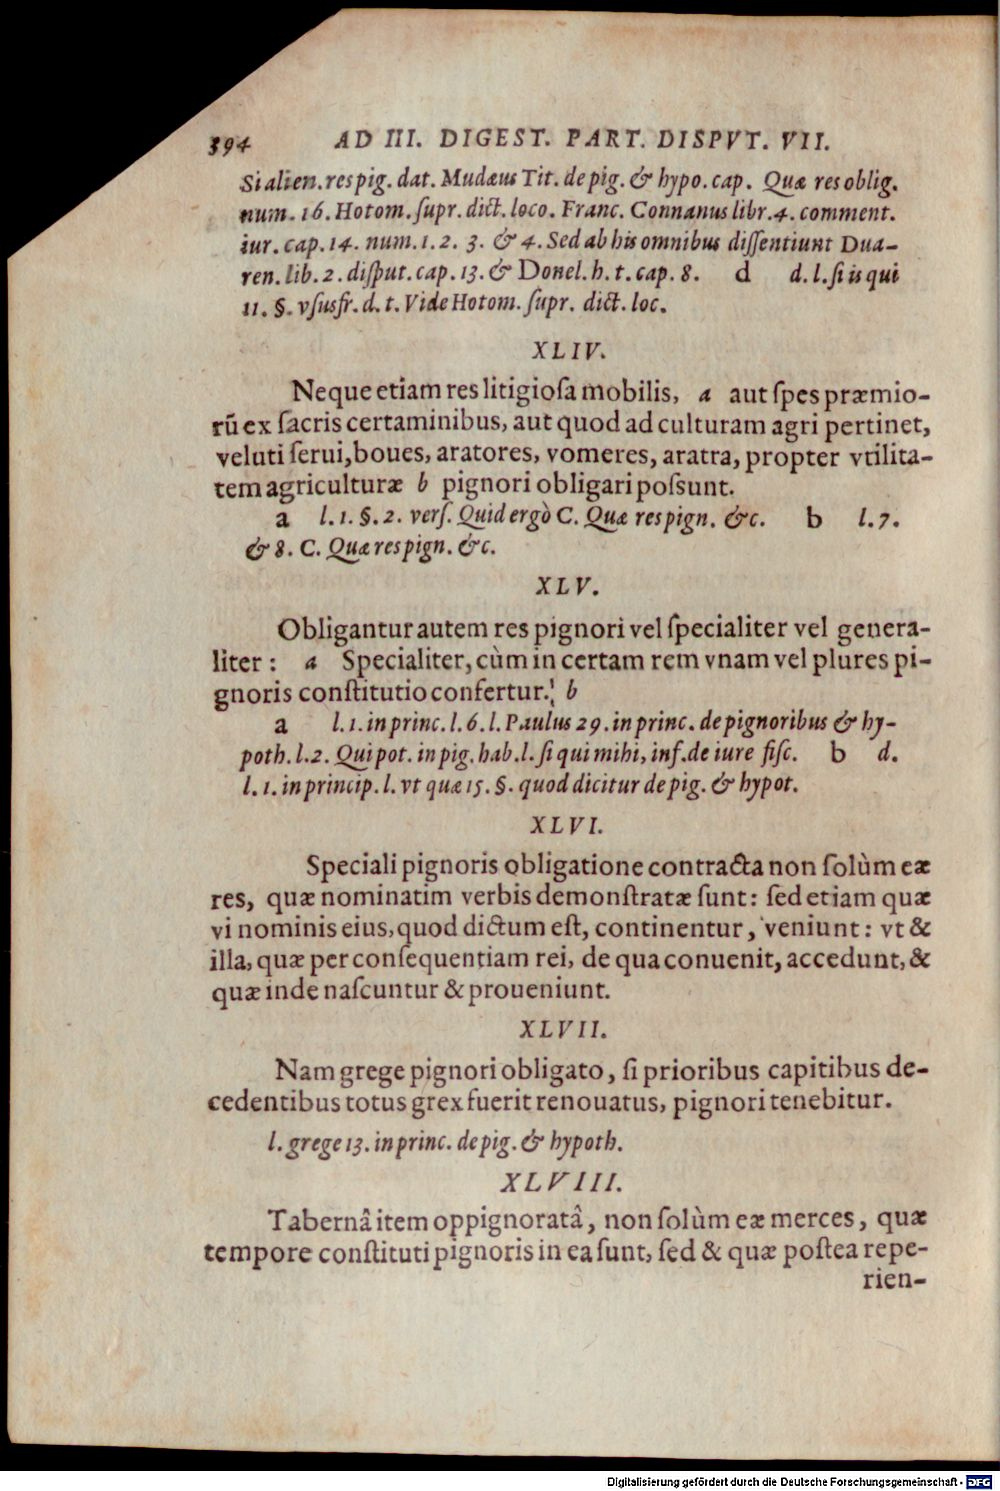 394 AD III. DIGEST. PART. DISPVT. VII.
Si alien. res pig. dat. Mudæus Tit. de pig. & hypo. cap. Quæ res oblig.
num. 16. Hotom. ſupr. dict. loco. Franc. Connanus libr. 4. comment.
iur. cap. 14. num. 1. 2. 3. & 4. Sed ab his omnibus diſſentiunt Dua-
ren. lib. 2. diſput. cap. 13. & Donel. h. t. cap. 8. d d. l. ſi is qui
11. §. vſusfr. d. t. Vide Hotom. ſupr. dict. loc.
XLIV.
Neque etiam res litigioſa mobilis, a aut ſpes præmio-
rũ ex ſacris certaminibus, aut quod ad culturam agri pertinet,
veluti ſerui, boues, aratores, vomeres, aratra, propter vtilita-
tem agriculturæ b pignori obligari poſsunt.
a l. 1. §. 2. verſ. Quid ergò C. Quæ res pign. &c. b l. 7.
& 8. C. Quæ res pign. &c.
XLV.
Obligantur autem res pignori vel ſpecialiter vel genera-
liter: a Specialiter, cùm in certam rem vnam vel plures pi-
gnoris conſtitutio confertur. b
a l. 1. in princ. l. 6. l. Paulus 29. in princ. de pignoribus & hy-
poth. l. 2. Qui pot. in pig. hab. l. ſi qui mihi, inf. de iure fiſc. b d.
l. 1. in princip. l. vt quæ 15. §. quod dicitur de pig. & hypot.
XLVI.
Speciali pignoris obligatione contracta non ſolùm eæ
res, quæ nominatim verbis demonſtratæ ſunt: ſed etiam quæ
vi nominis eius, quod dictum eſt, continentur, veniunt: vt &
illa, quæ per conſequentiam rei, de qua conuenit, accedunt, &
quæ inde naſcuntur & proueniunt.
XLVII.
Nam grege pignori obligato, ſi prioribus capitibus de-
cedentibus totus grex fuerit renouatus, pignori tenebitur.
l. grege 13. in princ. de pig. & hypoth.
XLVIII.
Tabernâ item oppignoratâ, non ſolùm eæ merces, quæ
tempore conſtituti pignoris in ea ſunt, ſed & quæ poſtea repe-
rien-
Digitalisierung gefördert durch die Deutsche Forschungsgemeinschaft - DFG